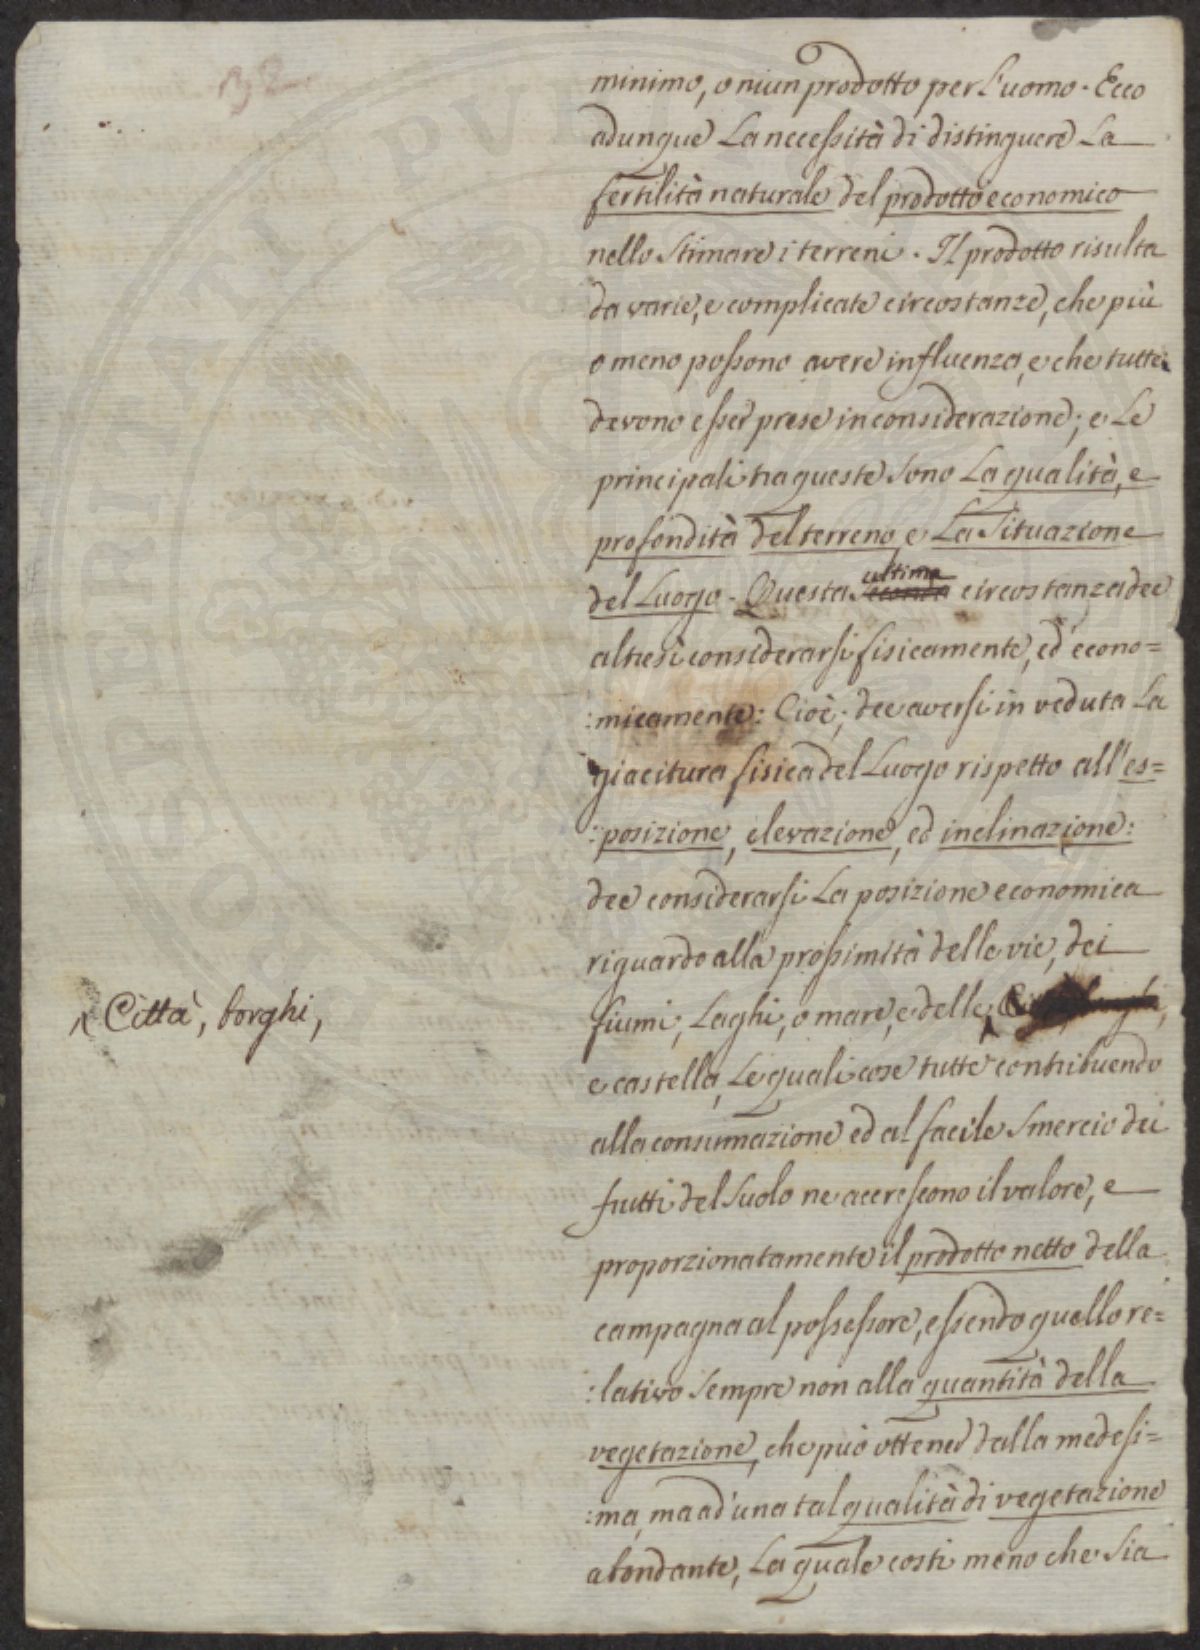 32.
minimo, o niun prodotto per l'uomo. Ecco
adunque la necessità di distinguere la
fertilità naturale del prodotto economico
nello stimare i terreni. Il prodotto risulta
da varie, e complicate circostanze, che più
o meno possono avere influenza, e che tutte
devono esser prese in considerazione; e le
principali tra queste sono la qualità, e
profondità del terreno e la situazione
ultima
del luogo. Questa seconda circostanza dee
altresì considerarsi fisicamente, ed econo=
:micamente: Cioè; dee aversi in veduta la
giacitura fisica del luogo rispetto all'es=
:posizione, elevazione, ed inclinazione:
dee considerarsi la posizione economica
riguardo alla prossimità delle vie, dei
fiumi, laghi, o mare, e delle
Città, borghi,
e castella, le quali cose tutte contribuendo
alla consumazione ed al facile smercio dei
frutti del suolo ne accrescono il valore, e
proporzionatamente il prodotto netto della
campagna al possessore, essendo quello re=
:lativo sempre non alla quantità della
vegetazione, che può ottener dalla medesi=
:ma, ma ad una tal qualità di vegetazione
abondante, la quale costi meno che sia